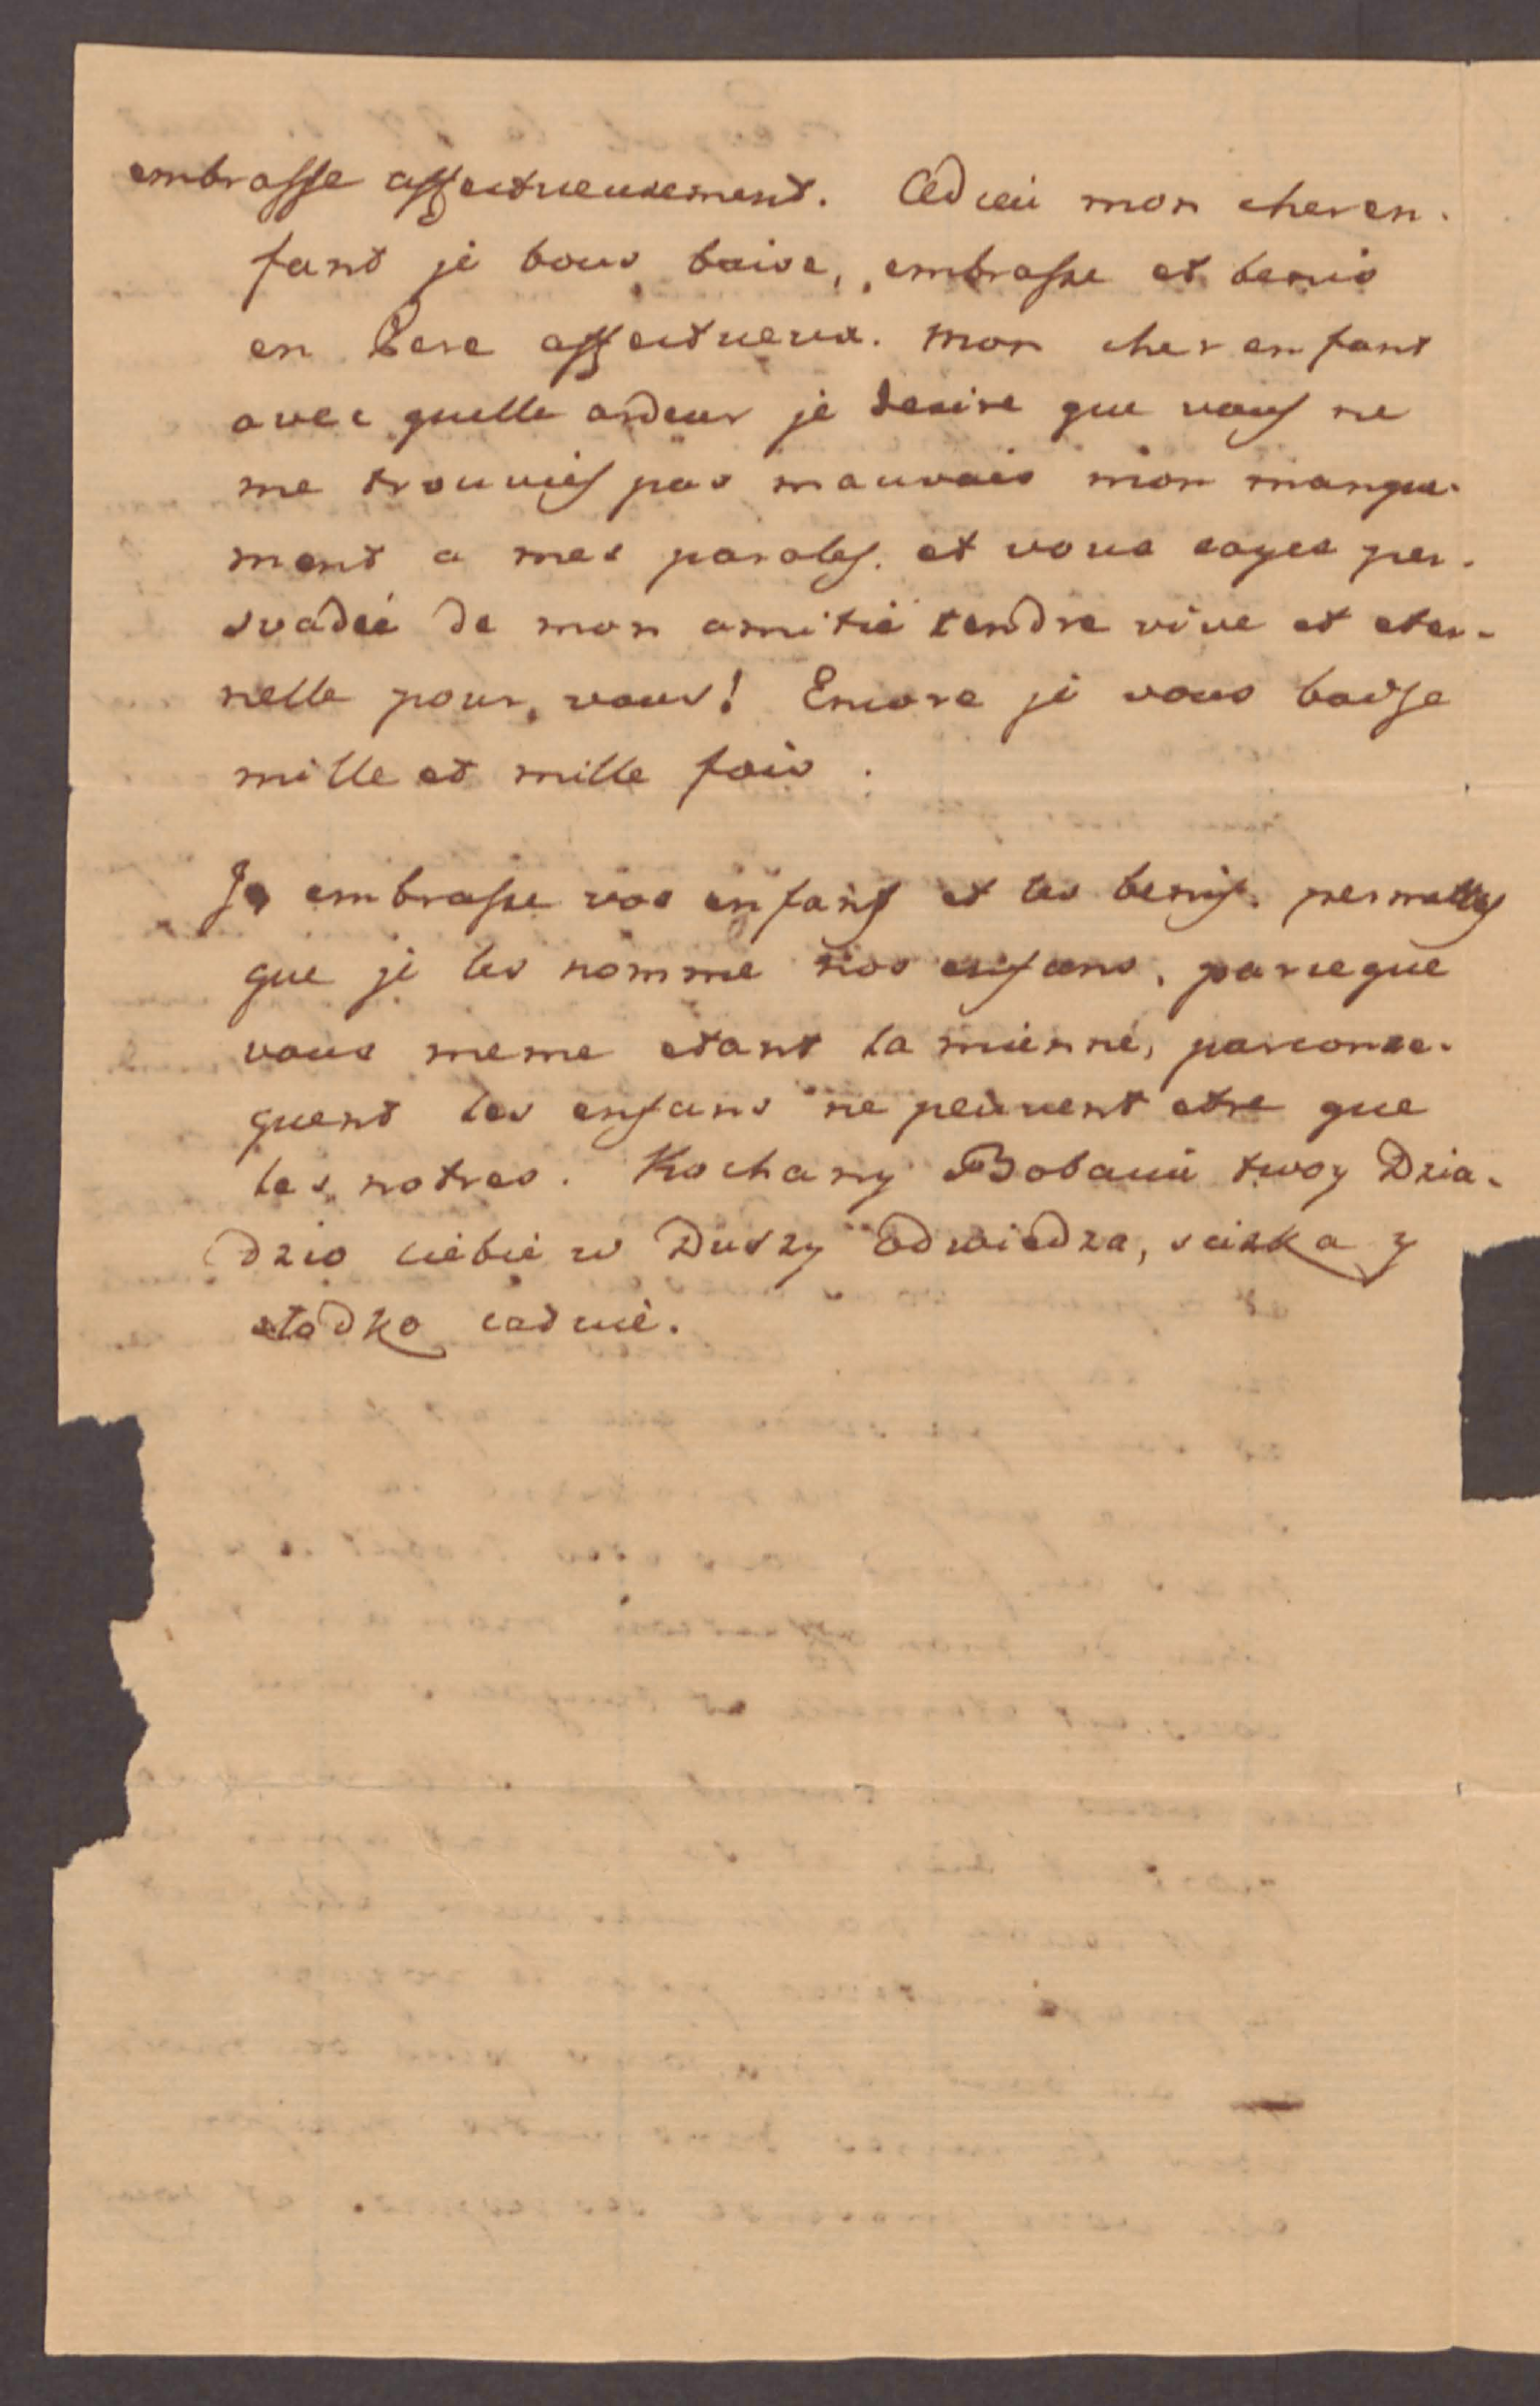 embrasse affectueusement. Adieu mon cher en-
fant je vous baise, embrasse et benis
en Pere affectueux. Mon cher enfant
avec quelle ardeur je desire que vous ne
me trouvies pas mauvais mon manque-
ment a mes paroles. et vous soyes per-
svadée de mon amitié tendre vive et eter-
nelle pour vous! Encore je vous baise
mille et mille fois.
Je embrasse vos enfans et les benis. permettes
que je les nomme nos enfans, parceque
vous meme etant la mienne, parconse-
quent les enfans ne peuvent etre que
les notres. Kochany Bobciu twoy Dzia-
dzio ciebie w Duszy Odwiedza, sciska y
słodko całuie.